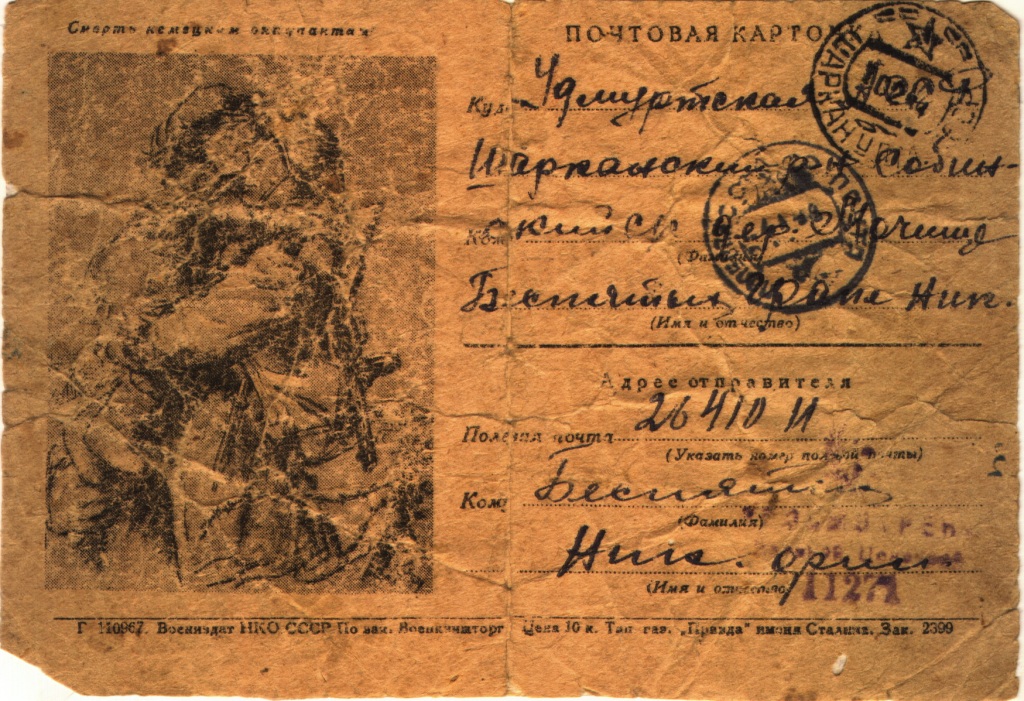 Смерть немецким оккупантам
ПОЧТОВАЯ КАРТОЧКА
Куда Удмуртская
Шарканский р-н Собин-
Кому ский с/с дер. Мочище
(Фамилия)
Беспятых Ник.
(Имя и отчество)
Адрес отправителя
Полевая почта 26410 И
(Указать номер полевой почты)
Кому Беспятых
(Фамилия)
Ник.
(Имя и отчество)
11271
Г 110967. Воениздат НКО СССР По зак. Военкниготорг Цена 10 к. Тип. газ. „Правда" имени Сталина. Зак. 2399
ШАРКАН